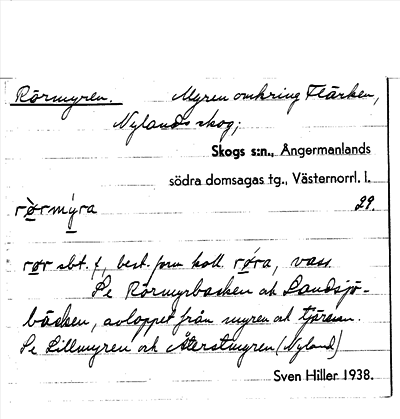 Rörmyren. Myren omkring Flärken,
Nylands skog;
Skogs s:n., Ångermanlands
södra domsagas tg., Västernorrl. l.
rø̀rmýra 29.
rør sbt. f., best. form koll. røra, vass.
Se Rörmyrbacken och Landsjö-
bäcken, avloppet från myren och tjärnen.
Se Lillmyren och Återstmyren (Nyland)
Sven Hiller 1938.